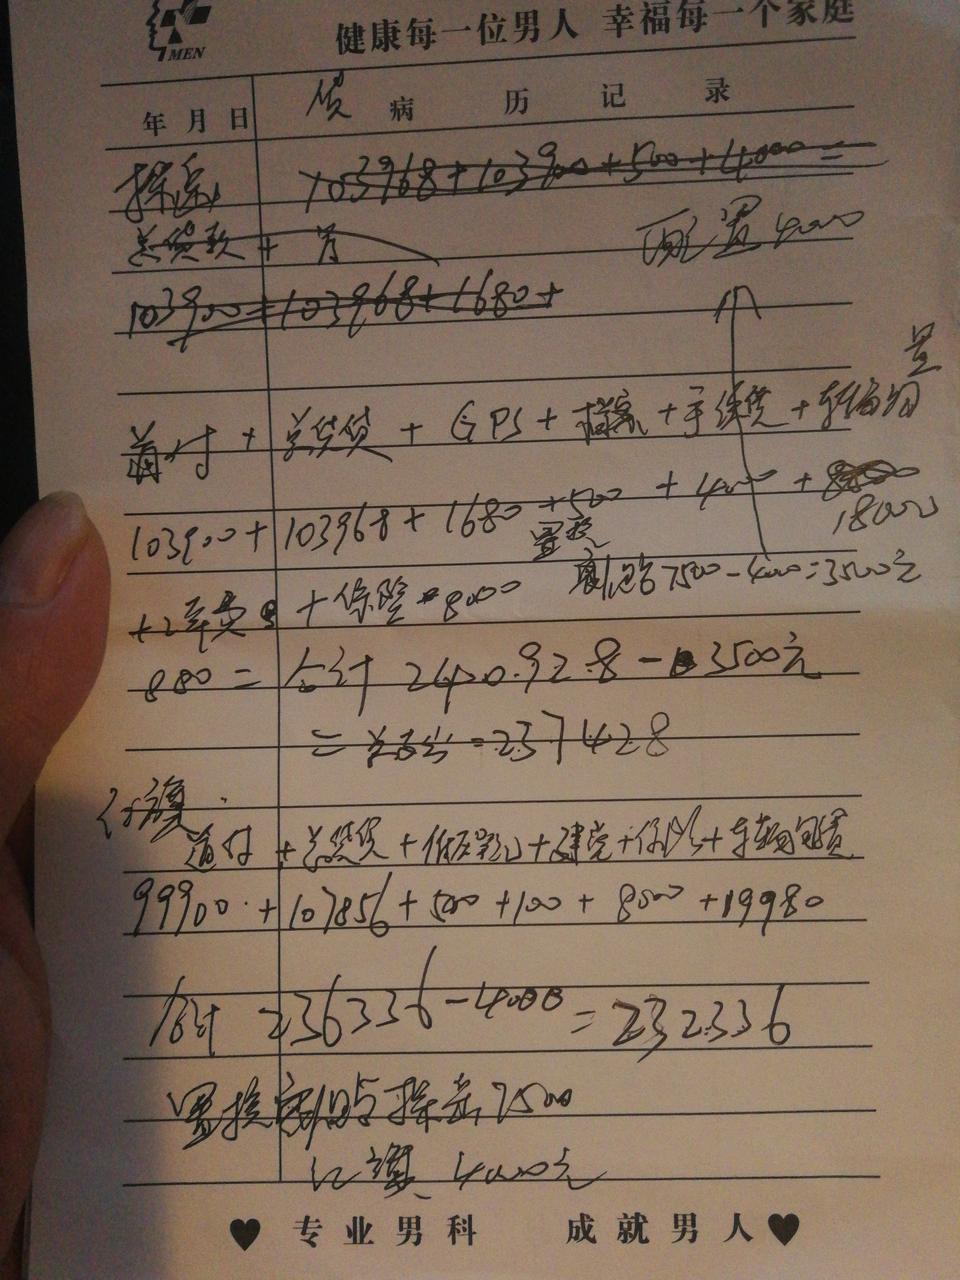 健康每一位男人 幸福每一个家庭
MEN
贷
年 月 日 病 历 记 录
探岳 103968+103900+500+4000=
总贷款+首
配置4000
103900=103968+1680+
首付+总贷贷+GPS+档案+手续费+车辆购
置
103900+103968+1680+500+4000+
18000
置换
+上车费 +保险=8000 刺贴7500-4000=3500元
880=合计 240.928-3500元
=总支出=237428
红旗
首付+总贷贷+ + +保险+车辆购置
99900+107856+500+100+8000+19980
合计 236336-4000=232336
置换 贴探岳7500
红旗4000元
专业男科 成就男人